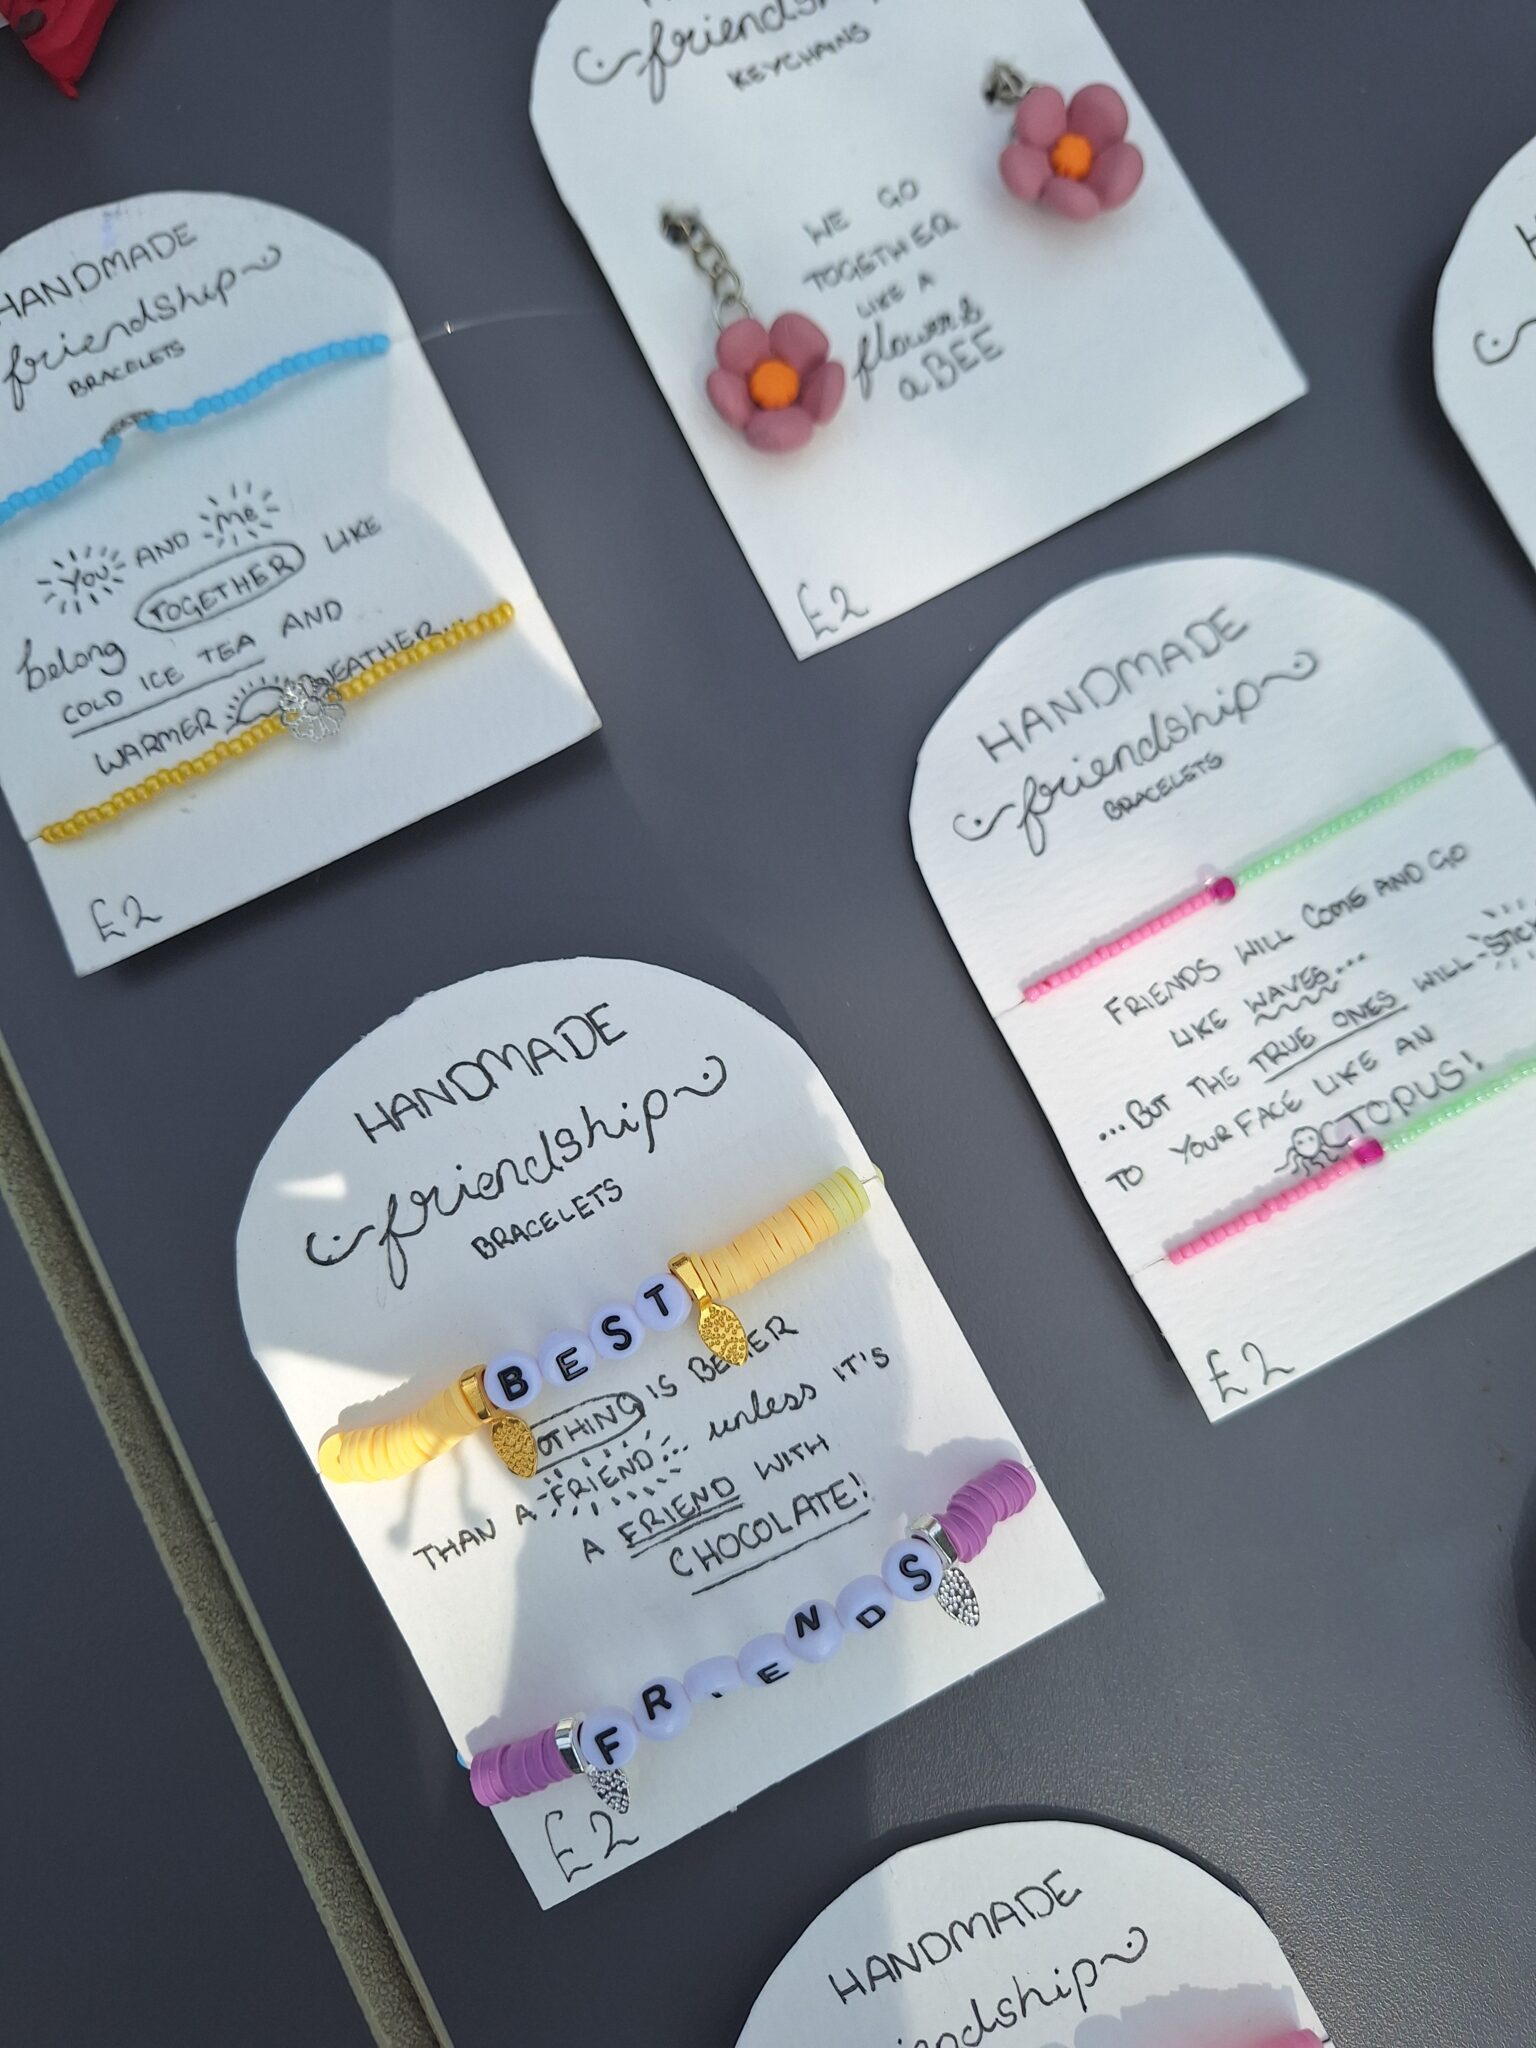 friendship
KEYCHAINS
WE GO
TOGETHER
LIKE A
flower &
a BEE
£2
HANDMADE
friendship
BRACELETS
YOU AND ME
belong TOGETHER LIKE
COLD ICE TEA AND
WARMER WEATHER...
£2
HANDMADE
friendship
BRACELETS
FRIENDS WILL COME AND GO
LIKE WAVES...
...BUT THE TRUE ONES WILL STICK
TO YOUR FACE LIKE AN
OCTOPUS!
£2
HANDMADE
friendship
BRACELETS
BEST
NOTHING IS BETTER
THAN A FRIEND... unless IT'S
A FRIEND WITH
CHOCOLATE!
FRIENDS
£2
HANDMADE
friendship